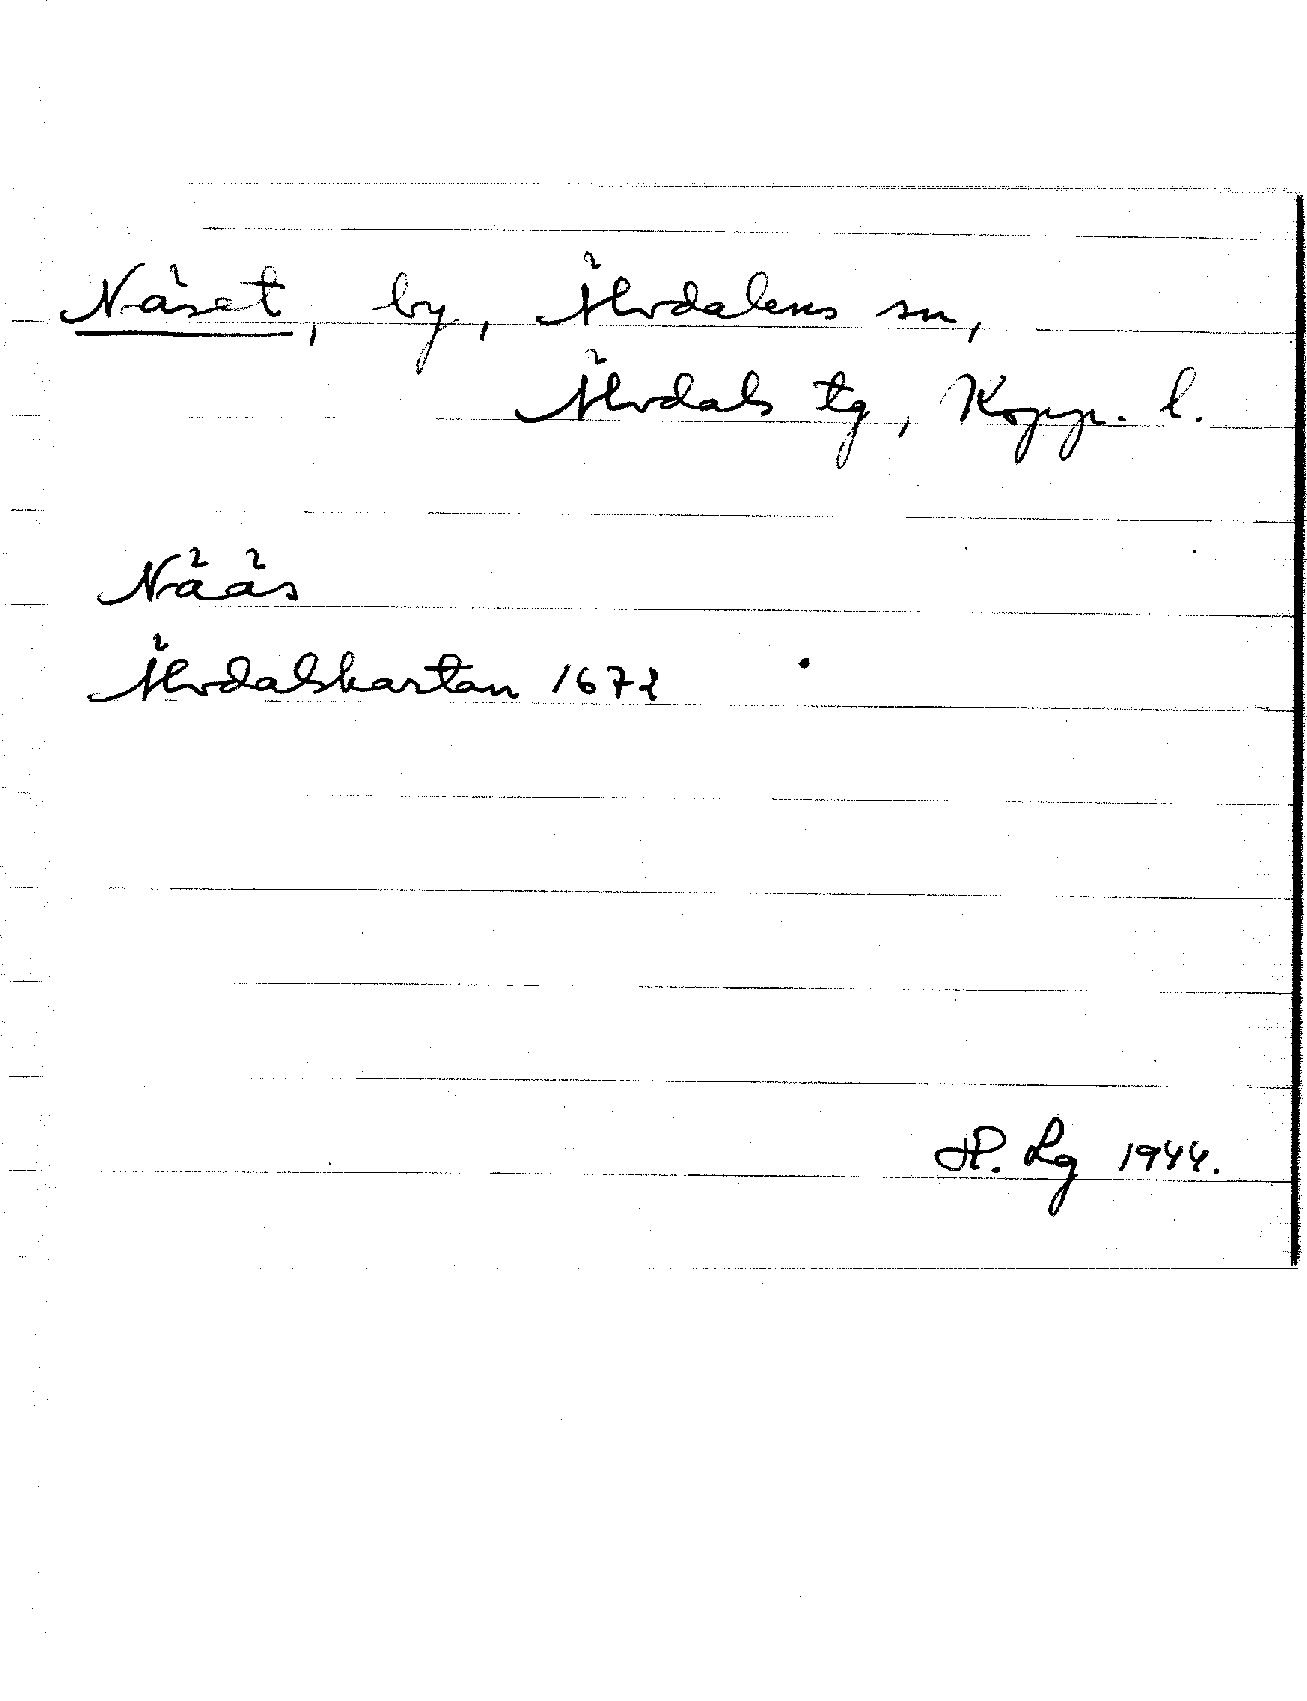 Näset, by, Älvdalens sn,
Älvdals tg, Kopp. l.
Nääs
Älvdalskartan 1672
H. Lg 1944.